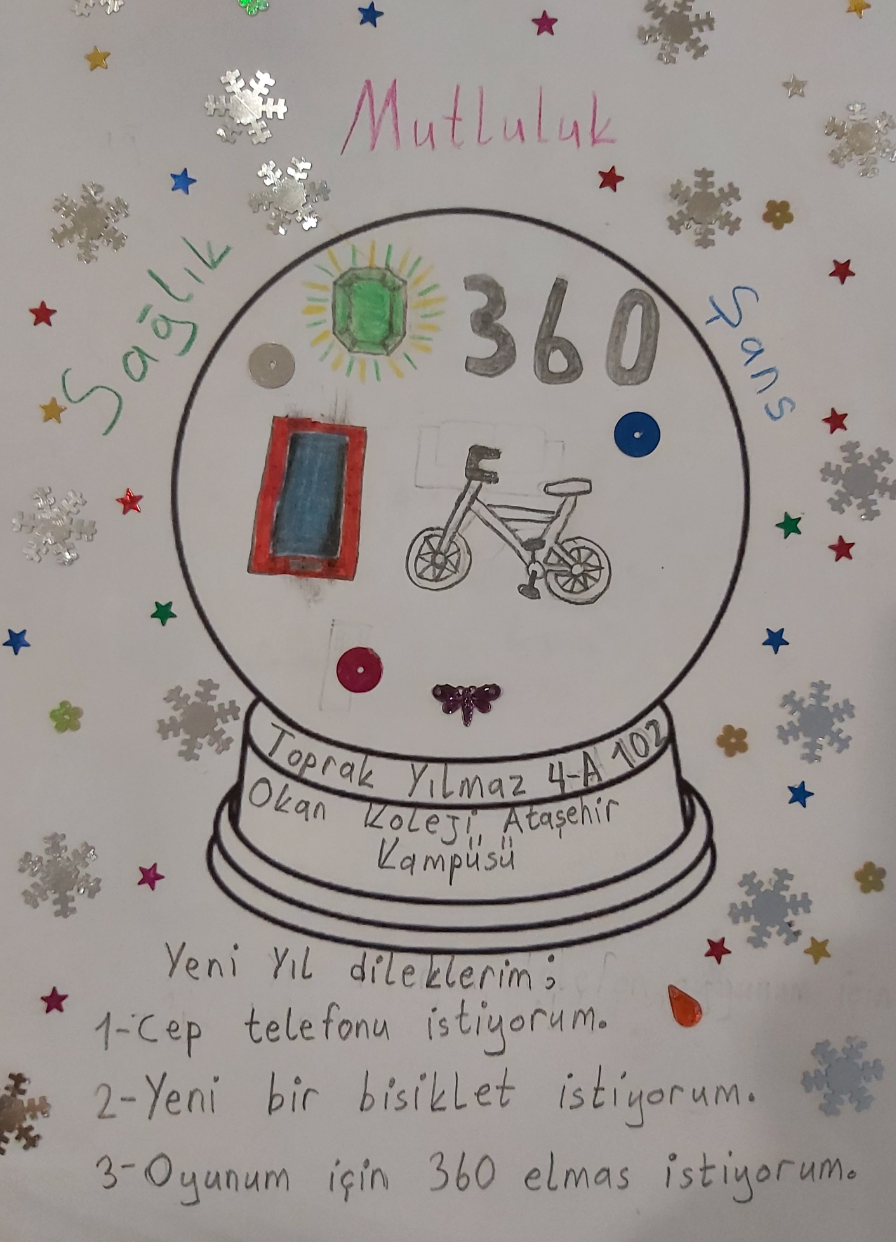 Mutluluk
Sağlık
Şans
360
Toprak Yılmaz 4-A 102
Okan Koleji Ataşehir
Kampüsü
Yeni Yıl dileklerim;
1-Cep telefonu istiyorum.
2-Yeni bir bisiklet istiyorum.
3-Oyunum için 360 elmas istiyorum.